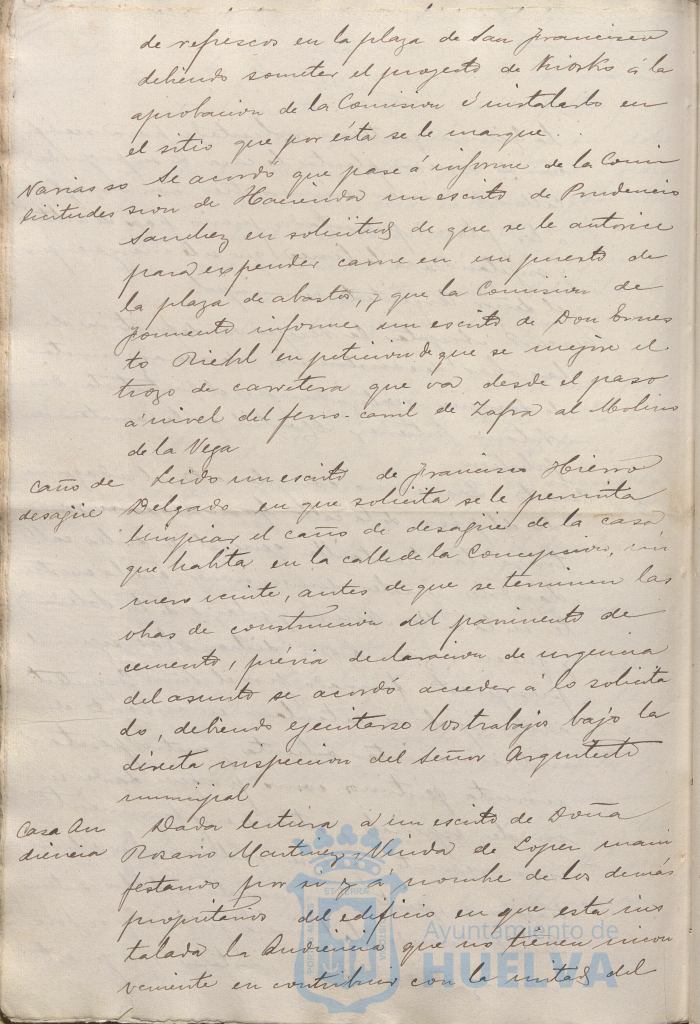 de refrescos en la plaza de San Francisco
debiendo someter el proyecto de Kiosko á la
aprobacion de la Comision é instalarlo en
el sitio que por ésta se le marque.
Varias so
licitudes
Se acordó que pase á informe de la Comi
sion de Hacienda un escrito de Prudencio
Sanchez en solicitud de que se le autorice
para expender carne en un puesto de
la plaza de abastos, y que la Comision de
Fomento informe un escrito de Don Ernes
to Riehl en peticion de que se mejore el
trozo de carretera que va desde el paso
á nivel del ferro-carril de Zafra al Molino
de la Vega
Caño de
desagüe
Leido un escrito de Francisco Hierro
Delgado en que solicita se le permita
limpiar el caño de desagüe de la casa
que habita en la calle de la Concepcion, nú
mero veinte, antes de que se terminen las
obras de construccion del pavimento de
cemento, prévia declaracion de urgencia
del asunto se acordó acceder á lo solicita
do, debiendo ejecutarse los trabajos bajo la
directa inspeccion del Señor Arquitecto
municipal
Casa Au
diencia
Dada lectura á un escrito de Doña
Rosario Martinez, Viuda de Lopez mani
festando por sí y á nombre de los demás
propietarios del edificio en que está ins
talada la Audiencia que no tienen incon
veniente en contribuir con la mitad del
Ayuntamiento de
HUELVA